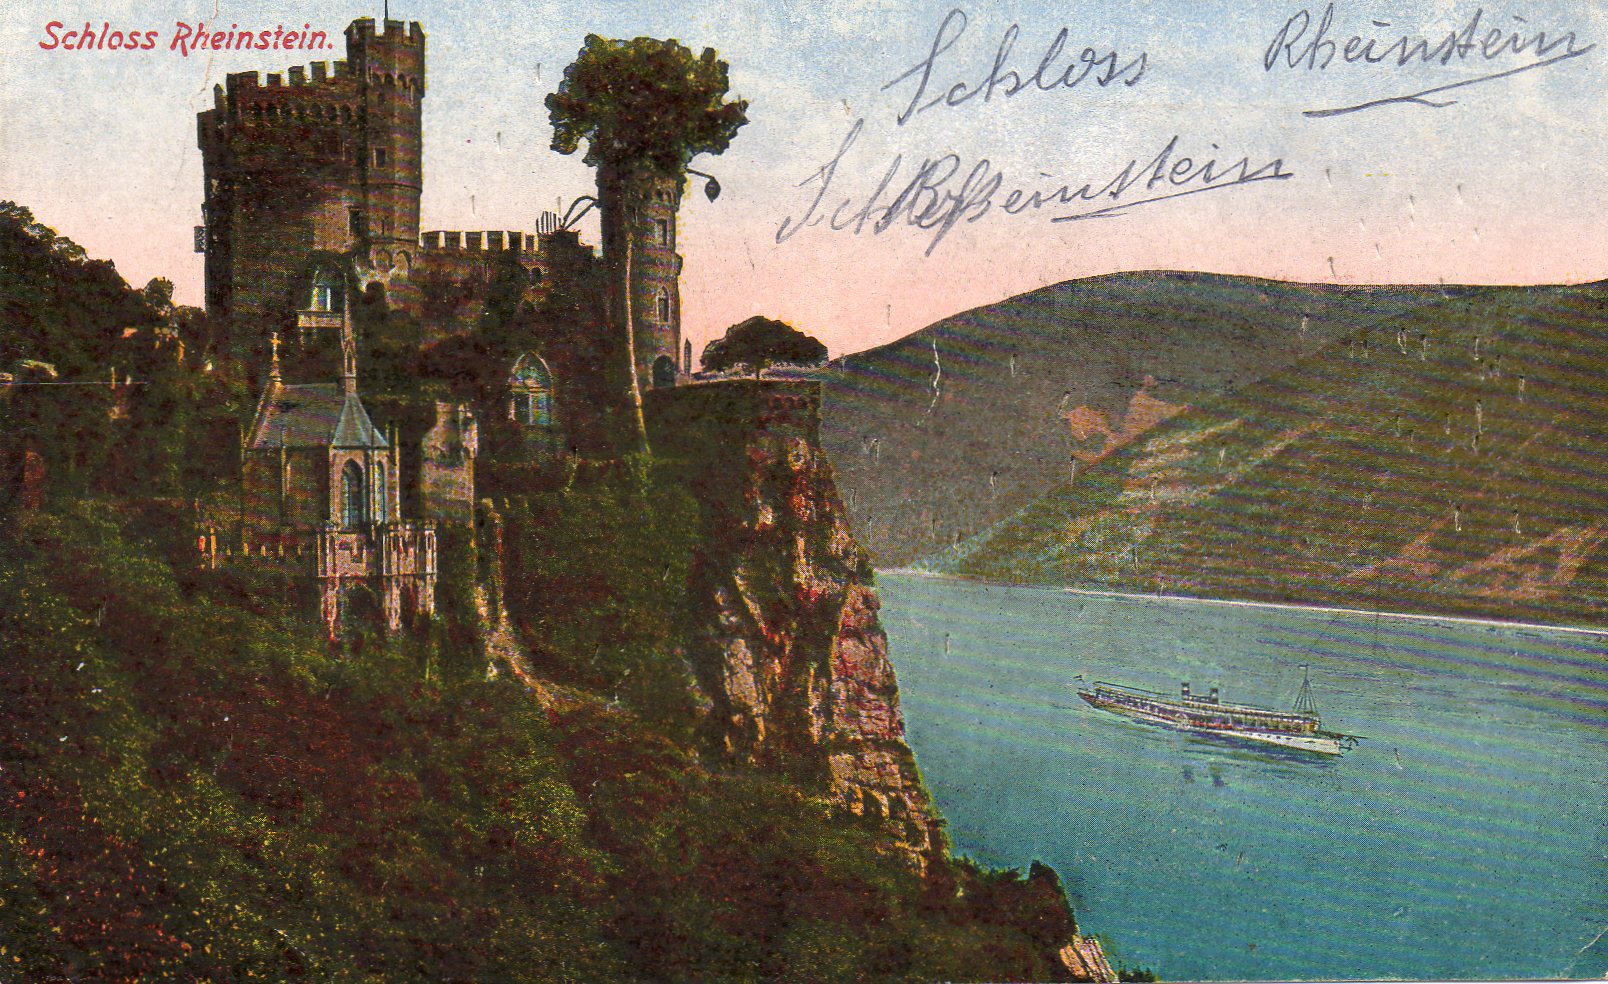 Schloss Rheinstein.
Schloss Rheinstein
Rheinstein